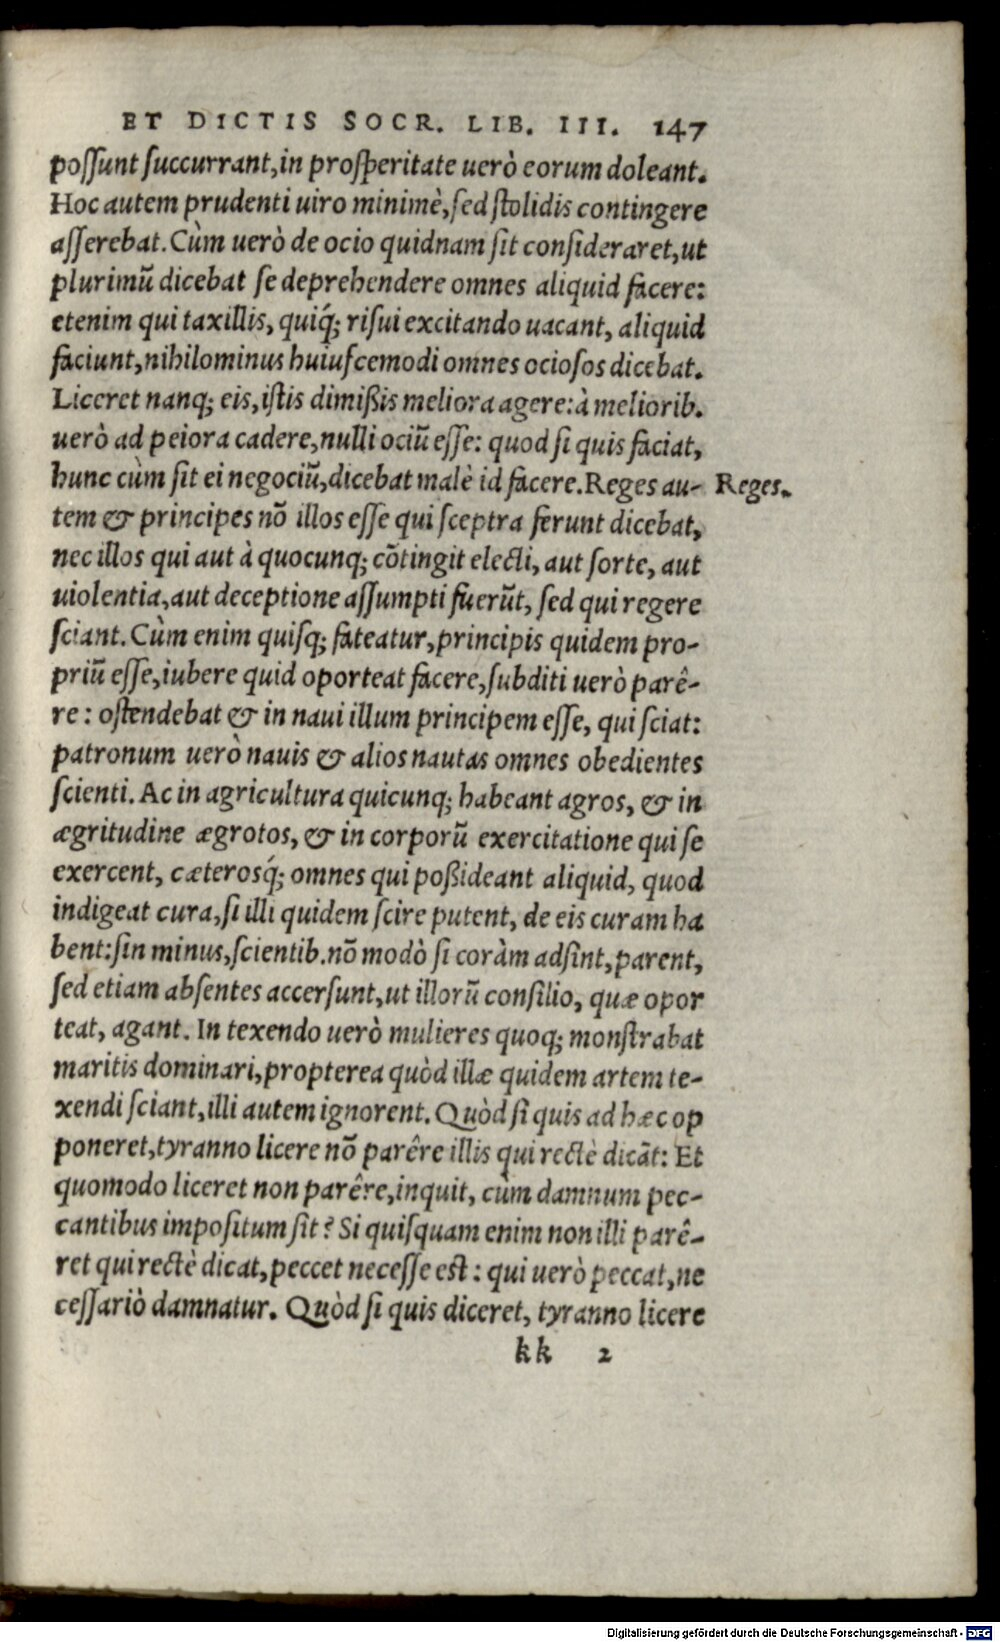 ET DICTIS SOCR. LIB. III. 147
poſſunt ſuccurrant, in proſperitate uerò eorum doleant.
Hoc autem prudenti uiro minimè, ſed ſtolidis contingere
aſſerebat. Cùm uerò de ocio quidnam ſit conſideraret, ut
plurimũ dicebat ſe deprehendere omnes aliquid facere:
etenim qui taxillis, quiq́; riſui excitando uacant, aliquid
faciunt, nihilominus huiuſcemodi omnes ocioſos dicebat.
Liceret nanq; eis, iſtis dimißis meliora agere: à meliorib.
uerò ad peiora cadere, nulli ociũ eſſe: quod ſi quis faciat,
hunc cùm ſit ei negociũ, dicebat malè id facere. Reges au-
Reges.
tem & principes nõ illos eſſe qui ſceptra ferunt dicebat,
nec illos qui aut à quocunq; cõtingit electi, aut ſorte, aut
uiolentia, aut deceptione aſſumpti fuerũt, ſed qui regere
ſciant. Cùm enim quiſq; fateatur, principis quidem pro-
priũ eſſe, iubere quid oporteat facere, ſubditi uerò parê-
re: oſtendebat & in naui illum principem eſſe, qui ſciat:
patronum uerò nauis & alios nautas omnes obedientes
ſcienti. Ac in agricultura quicunq; habeant agros, & in
ægritudine ægrotos, & in corporũ exercitatione qui ſe
exercent, cæterosq́; omnes qui poßideant aliquid, quod
indigeat cura, ſi illi quidem ſcire putent, de eis curam ha
bent: ſin minus, ſcientib. nõ modò ſi coràm adſint, parent,
ſed etiam abſentes accerſunt, ut illorũ conſilio, quæ opor
teat, agant. In texendo uerò mulieres quoq; monſtrabat
maritis dominari, propterea quòd illæ quidem artem te-
xendi ſciant, illi autem ignorent. Quòd ſi quis ad hæc op
poneret, tyranno licere nõ parêre illis qui rectè dicãt: Et
quomodo liceret non parêre, inquit, cùm damnum pec-
cantibus impoſitum ſit? Si quiſquam enim non illi parê-
ret qui rectè dicat, peccet neceſſe eſt: qui uerò peccat, ne
ceſſariò damnatur. Quòd ſi quis diceret, tyranno licere
kk 2
Digitalisierung gefördert durch die Deutsche Forschungsgemeinschaft - DFG